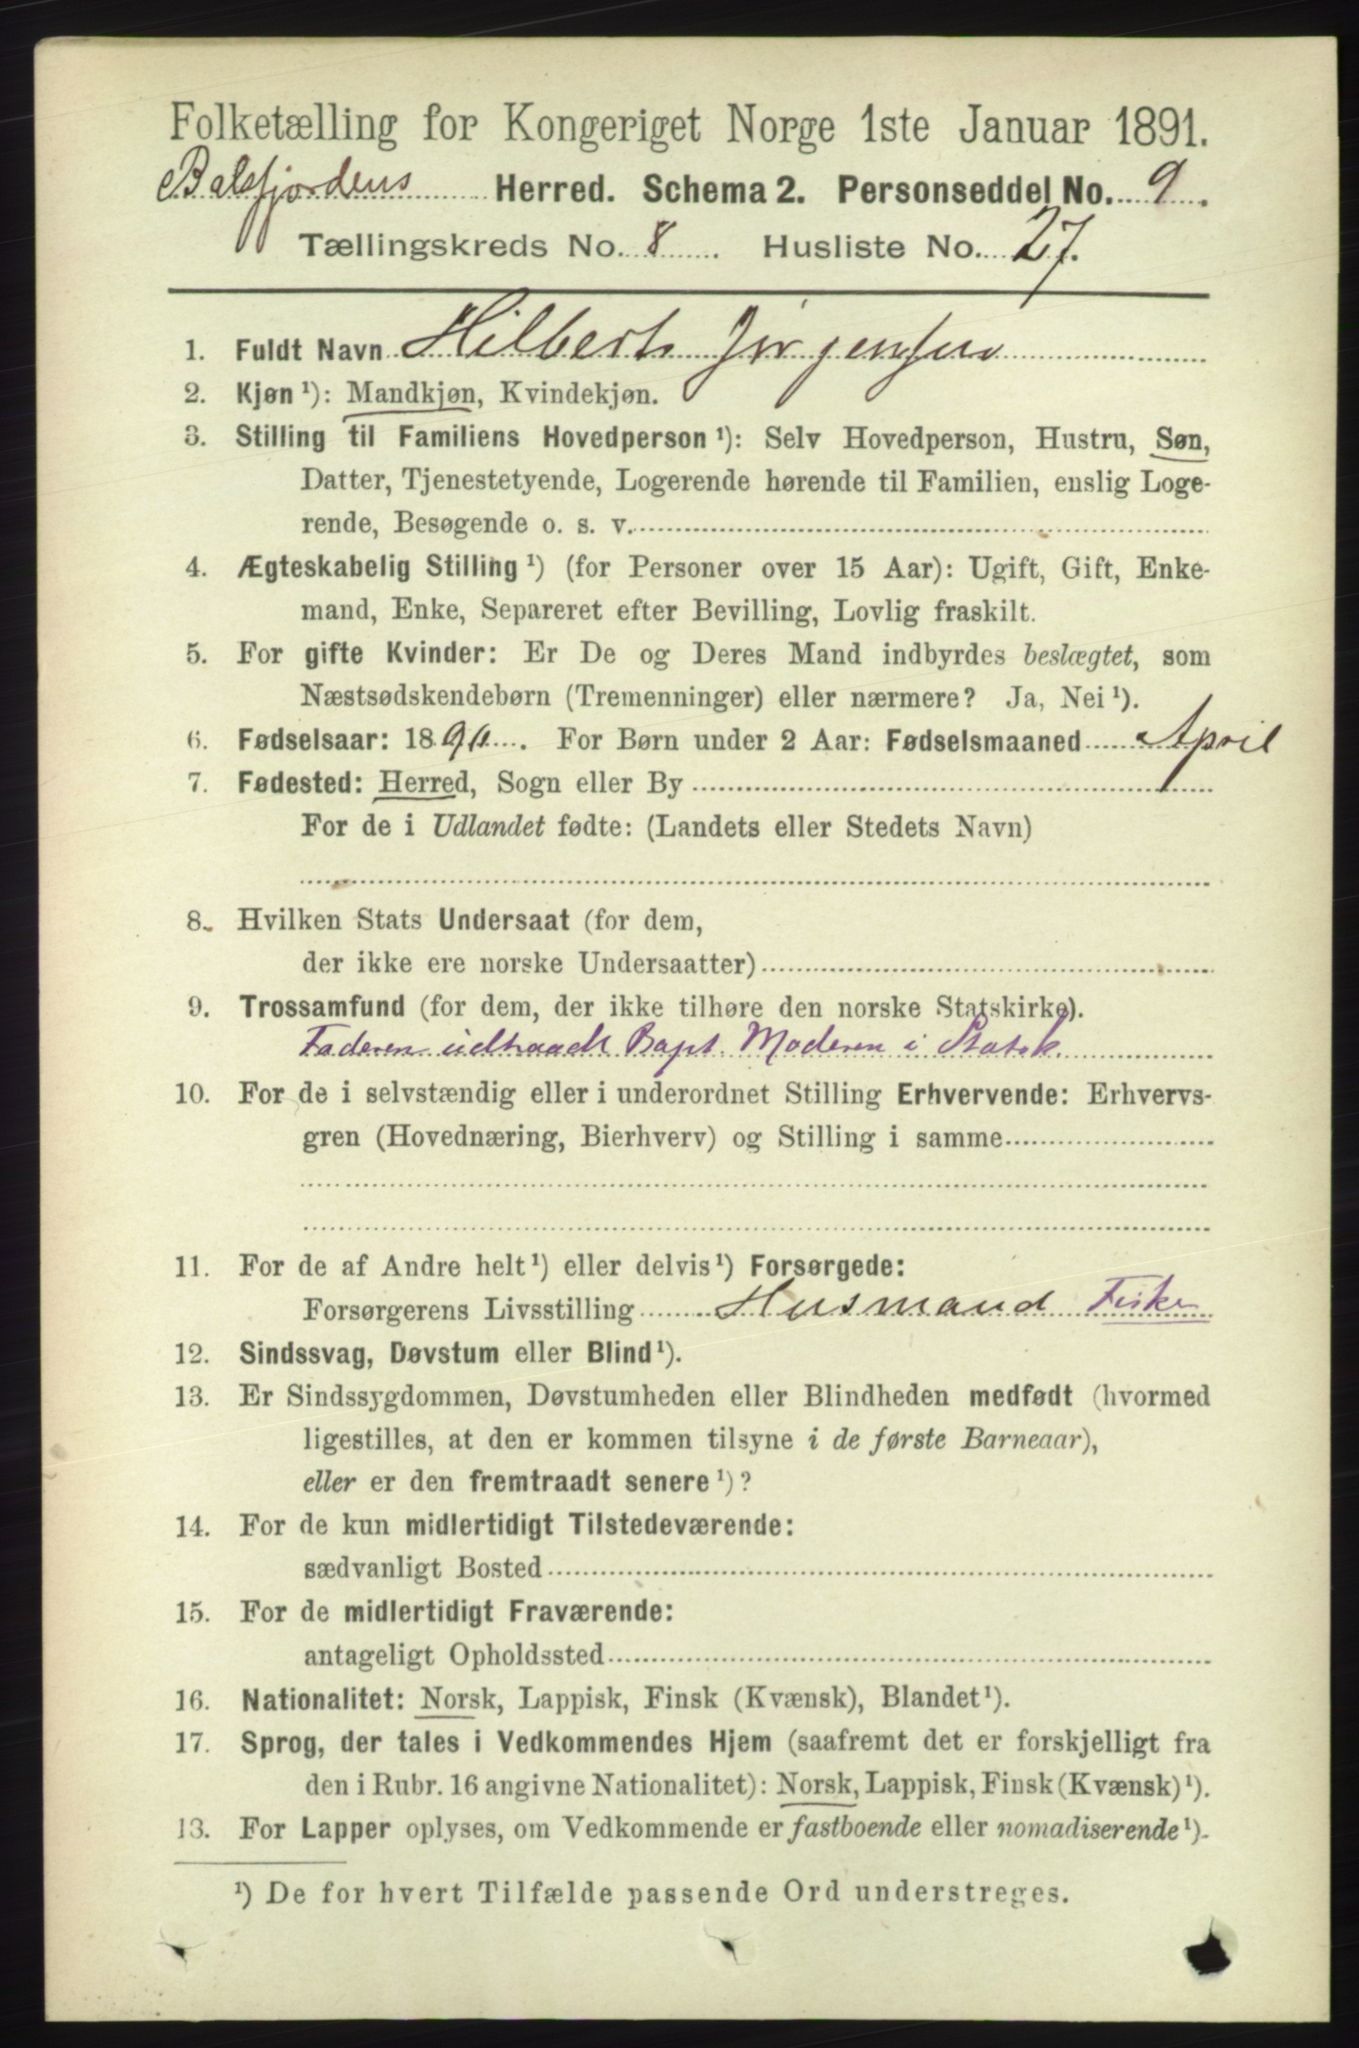 Folketælling for Kongeriget Norge 1ste Januar 1891.
Balsfjordens Herred. Schema 2. Personseddel No. 9.
Tællingskreds No. 8. Husliste No. 27.
1. Fuldt Navn Hilbert Jørgensen
2. Kjøn ¹): Mandkjøn, Kvindekjøn.
3. Stilling til Familiens Hovedperson ¹): Selv Hovedperson, Hustru, Søn,
Datter, Tjenestetyende, Logerende hørende til Familien, enslig Loge-
rende, Besøgende o. s. v.
4. Ægteskabelig Stilling ¹) (for Personer over 15 Aar): Ugift, Gift, Enke-
mand, Enke, Separeret efter Bevilling, Lovlig fraskilt.
5. For gifte Kvinder: Er De og Deres Mand indbyrdes beslægtet, som
Næstsødskendebørn (Tremenninger) eller nærmere? Ja, Nei ¹).
6. Fødselsaar: 1890. For Børn under 2 Aar: Fødselsmaaned April
7. Fødested: Herred, Sogn eller By
For de i Udlandet fødte: (Landets eller Stedets Navn)
8. Hvilken Stats Undersaat (for dem,
der ikke ere norske Undersaatter)
9. Trossamfund (for dem, der ikke tilhøre den norske Statskirke).
Faderen udtraadt Bapt. Moderen i Statsk.
10. For de i selvstændig eller i underordnet Stilling Erhvervende: Erhvervs-
gren (Hovednæring, Bierhverv) og Stilling i samme
11. For de af Andre helt ¹) eller delvis ¹) Forsørgede:
Forsørgerens Livsstilling Husmand Fisker
12. Sindssvag, Døvstum eller Blind ¹).
13. Er Sindssygdommen, Døvstumheden eller Blindheden medfødt (hvormed
ligestilles, at den er kommen tilsyne i de første Barneaar),
eller er den fremtraadt senere ¹)?
14. For de kun midlertidigt Tilstedeværende:
sædvanligt Bosted
15. For de midlertidigt Fraværende:
antageligt Opholdssted
16. Nationalitet: Norsk, Lappisk, Finsk (Kvænsk), Blandet ¹).
17. Sprog, der tales i Vedkommendes Hjem (saafremt det er forskjelligt fra
den i Rubr. 16 angivne Nationalitet): Norsk, Lappisk, Finsk (Kvænsk) ¹).
13. For Lapper oplyses, om Vedkommende er fastboende eller nomadiserende ¹).
¹) De for hvert Tilfælde passende Ord understreges.